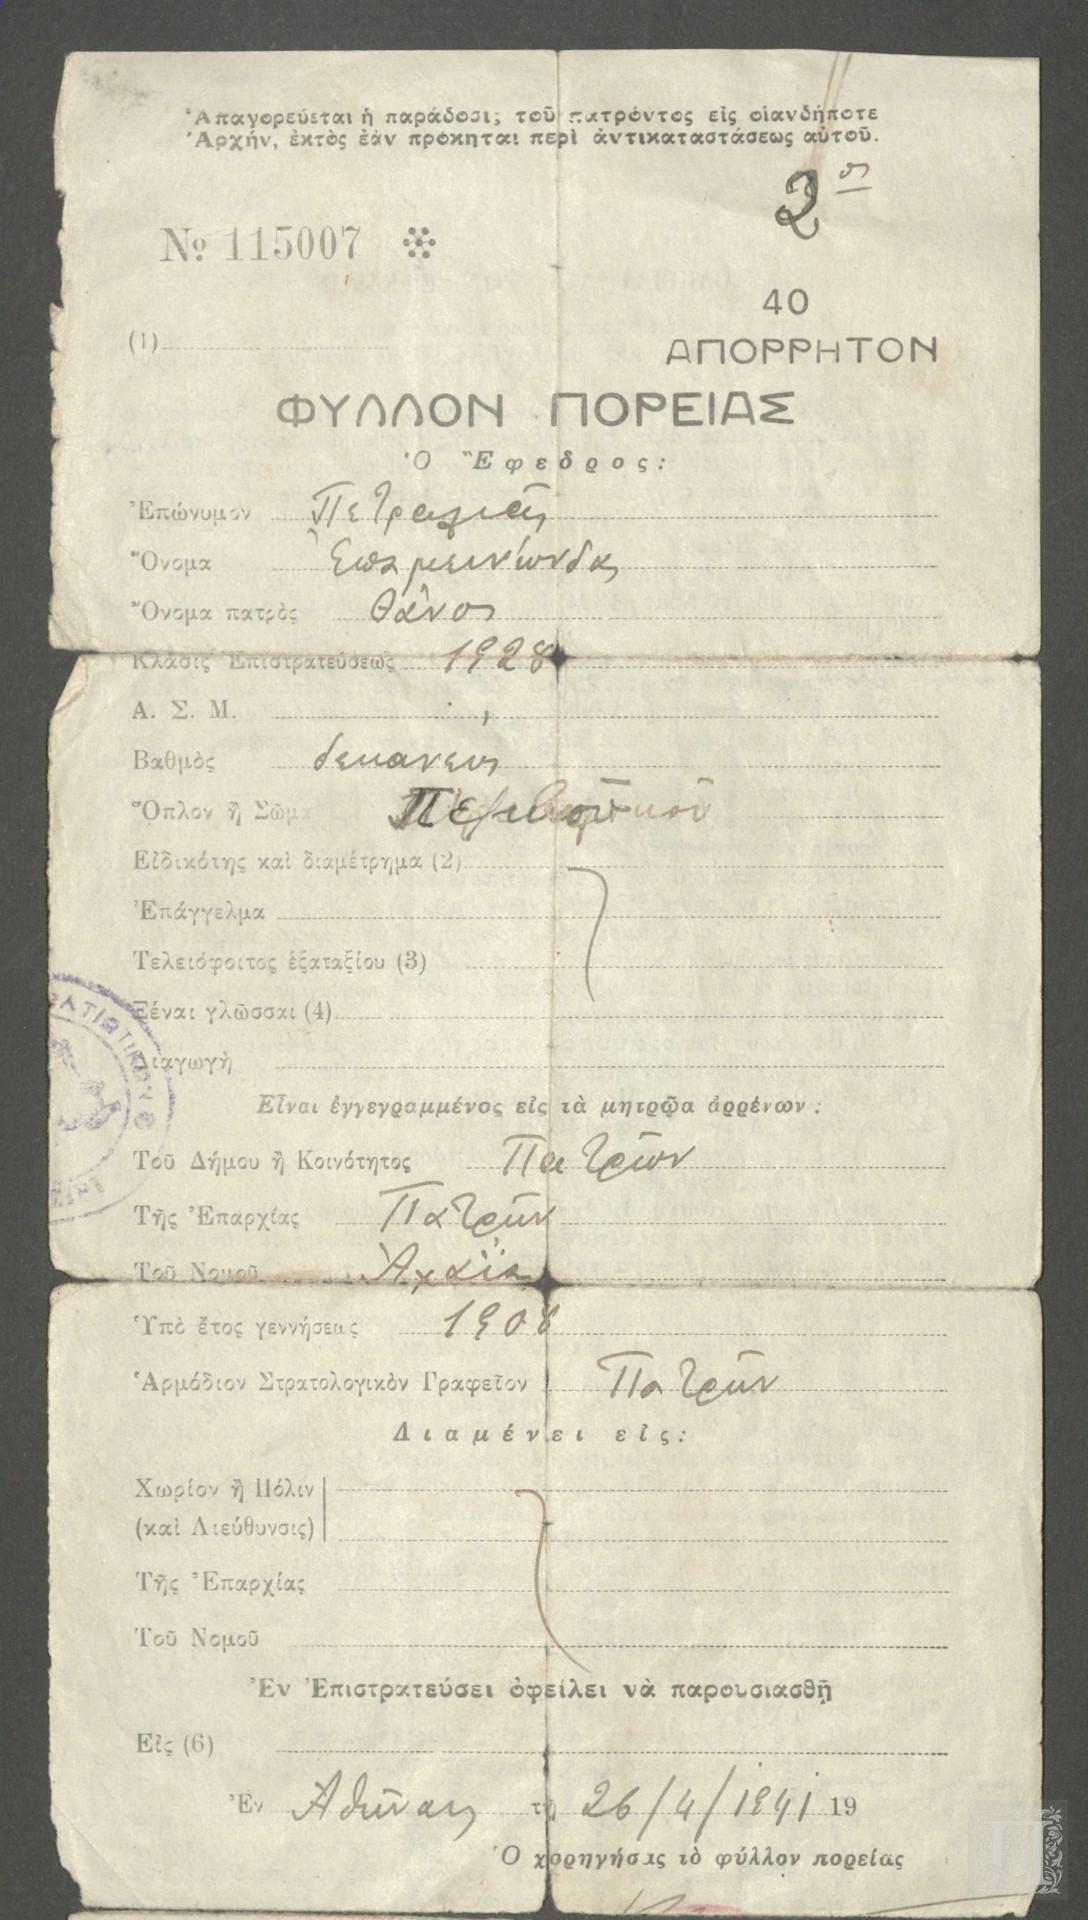 Ἀπαγορεύεται ἡ παράδοσι; τοῦ πατρόντος εἰς οἱανδήποτε
Ἀρχήν, ἐκτὸς ἐὰν πρόκηται περὶ ἀντικαταστάσεως αὐτοῦ.
2
№ 115007
40
(1)
ΑΠΟΡΡΗΤΟΝ
ΦΥΛΛΟΝ ΠΟΡΕΙΑΣ
Ὁ Ἔφεδρος:
Ἐπώνυμον
Ὄνομα Ἐπαμεινώνδας
Ὄνομα πατρὸς Θάνος
Κλάσις Ἐπιστρατεύσεως 1928
Α. Σ. Μ.
Βαθμὸς δεκανεύς
Ὅπλον ἢ Σῶμα
Εἰδικότης καὶ διαμέτρημα (2)
Ἐπάγγελμα
Τελειόφοιτος ἑξαταξίου (3)
Ξέναι γλῶσσαι (4)
Διαγωγὴ
Εἶναι ἐγγεγραμμένος εἰς τὰ μητρῷα ἀρρένων:
Τοῦ Δήμου ἢ Κοινότητος Πατρῶν
Τῆς Ἐπαρχίας Πατρῶν
Τοῦ Νομοῦ Ἀχαΐα
Ὑπὸ ἔτος γεννήσεως 1908
Ἁρμόδιον Στρατολογικὸν Γραφεῖον Πατρῶν
Διαμένει εἰς:
Χωρίον ἢ Πόλιν
(καὶ Διεύθυνσις)
Τῆς Ἐπαρχίας
Τοῦ Νομοῦ
Ἐν Ἐπιστρατεύσει ὀφείλει νὰ παρουσιασθῇ
Εἰς (6)
Ἐν Ἀθήναις τῇ 26/4/1941 19
Ὁ χορηγήσας τὸ φύλλον πορείας